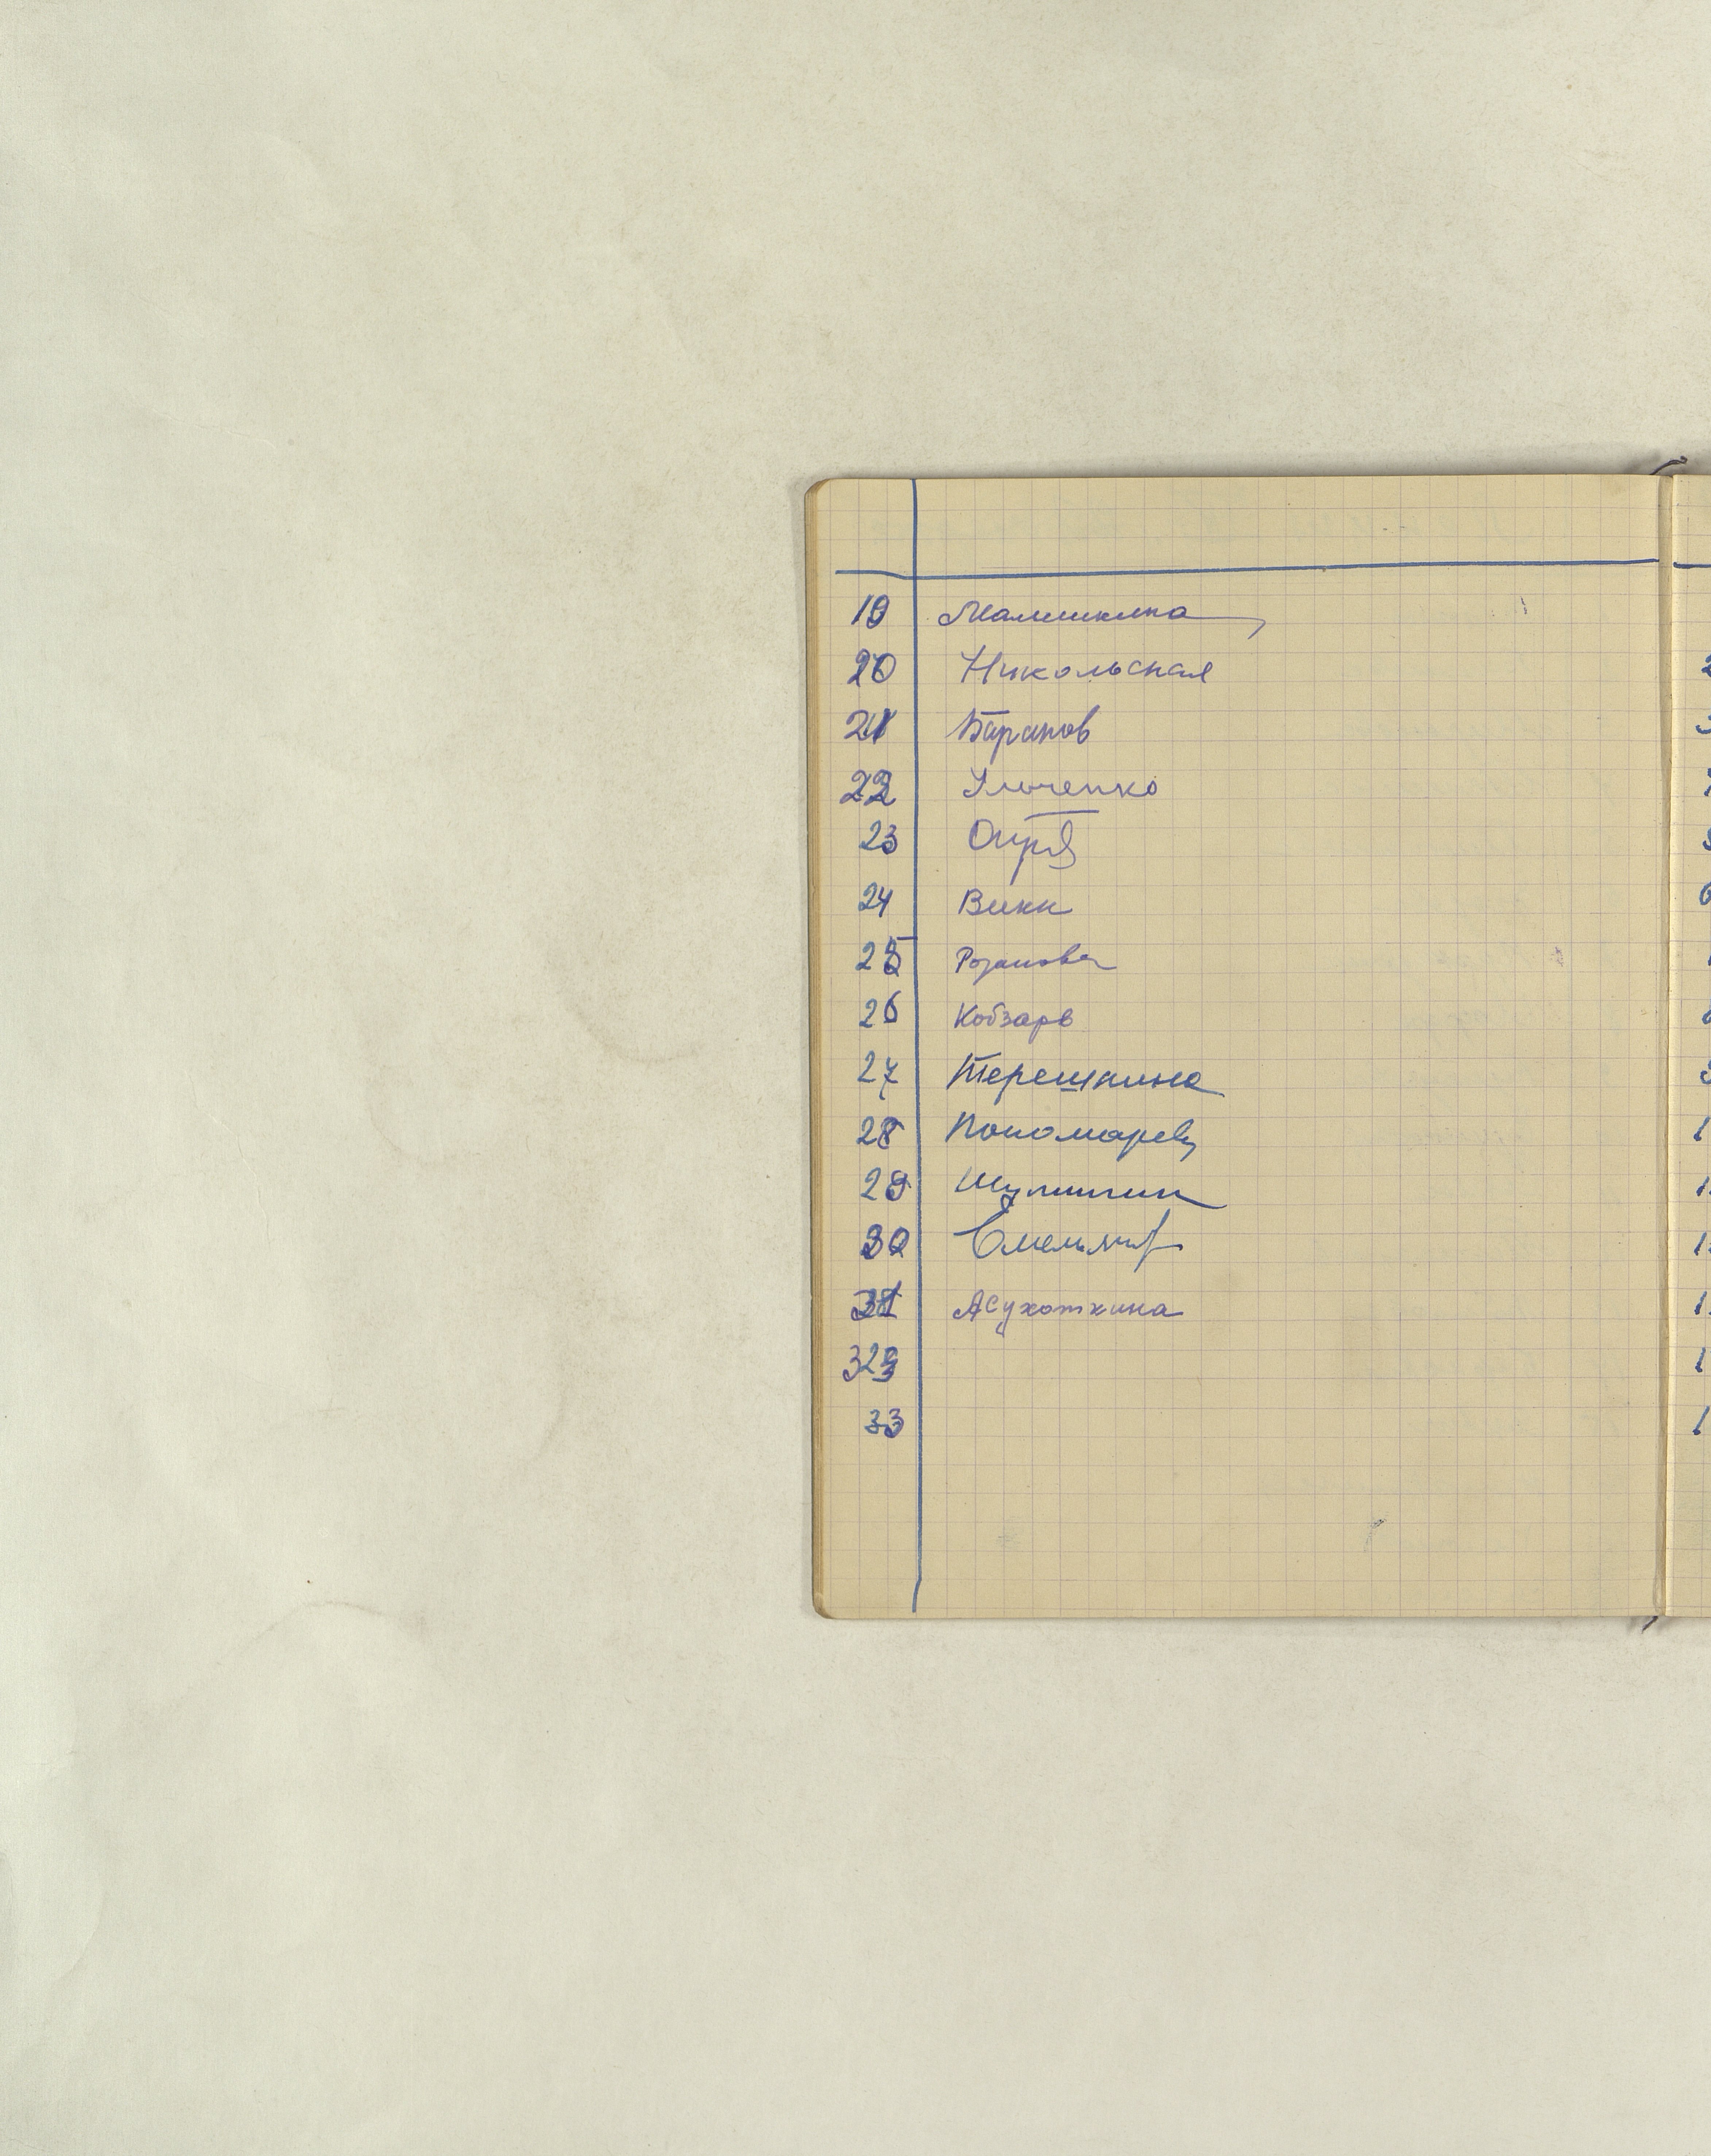 19 Малышкина
20 Никольская
21 Баранов
22 Ильченко
23
24 Викк
25 Розанова
26 Кобзарв
27 Терешкина
28 Пономарев
29 Шупиткин
30 Смельян
31 Асухоткина
32
33